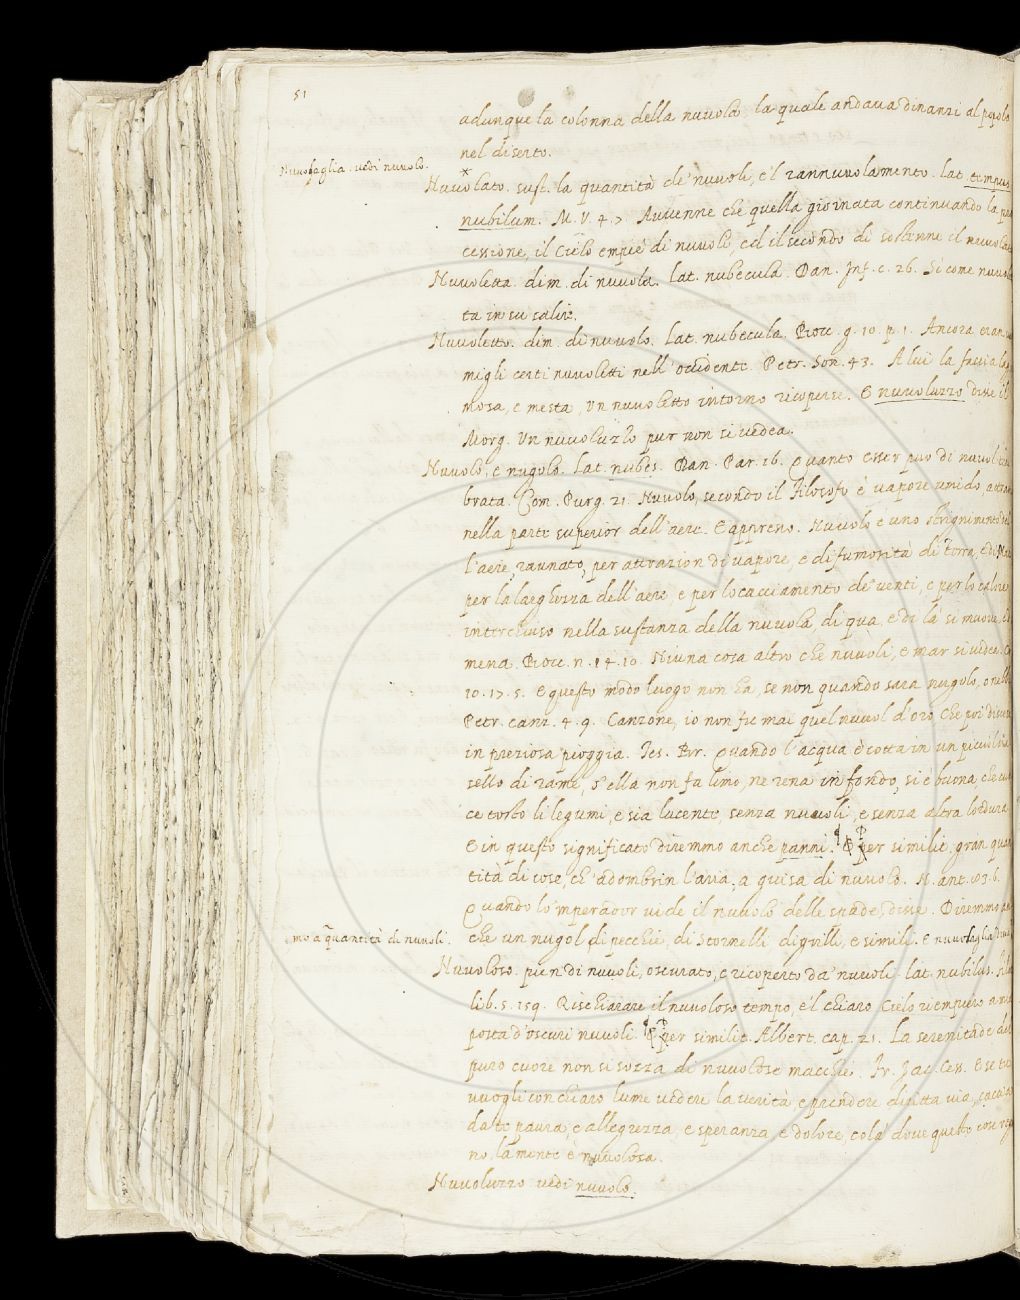 51
adunque la colonna della nuvola la quale andava dinanzi al popolo
nel diserto.
Nuvolaglia. vedi nuvolo.
Nuvolato. sust. la quantità de' nuvoli, e'l rannuvolamento. lat. tempus
nubilum. M. V. 4. 7 Avvenne che quella giornata continuando la
cessione, il Cielo empiè di nuvoli, ed il secondo di solenne il
Nuvoletta. dim. di nuvola. lat. nubecula. Dan. Inf. c. 26. Sì come nuvolet
ta in su salire.
Nuvoletto. dim. di nuvolo. Lat. nubecula. Bocc. g. 10. p. 1. Ancora eran
migli certi nuvoletti nell' occidente. Petr. Son. 43. A lui la faccia la
mosa, e mesta, Un nuvoletto intorno ricoperse. E nuvoluzzo disse il
Morg. Un nuvoluzlo pur non si vedea.
Nuvolo, e nugolo. Lat. nubes. Dan. Par. 16. quanto esser può di nuvol
brata. Com. Purg. 21. Nuvolo, secondo il Filosofo è vapore umido,
nella parte superior dell'aere. E appreno. Nuvolo è uno strignimento
l'aere, raunato, per attrazion di vapore, e di fumosità di terra, e di
per la larghezza dell' aere, e per lo cacciamento de' venti, e per lo calore
interchiuso nella sustanza della nuvola di qua, e di là si muove,
mena. Bocc. n. 14. 10. Niuna cosa altro che nuvoli, e mar si vedea.
10. 17. 5. E questo modo luogo non ha, se non quando sarà nugolo, o
Petr. canz. 4. 9. Canzone, io non fu mai quel nuvol d'oro Che poi
in preziosa pioggia. Tes. Br. Quando l'acqua è cotta in un piccolo
sello di rame, s'ella non fa limo, ne rena in fondo, si è buona, che
ce tosto li legumi, e sia lucente, senza nuvoli, e senza altra lordura
E in questo significato diremmo anche panni. Per similit. gran quan
tità di cose, ch' adombrin l'aria, a guisa di nuvolo. N. ant.
Quando lo 'mperador vide il nuvolo delle spade, disse. Diremmo
mo a quantità di nuvoli.
che un nugol di pecchie, di Stornelli di grilli, e simili. E nuvolaglia
Nuvoloso. pien di nuvoli, oscurato, e ricoperto da' nuvoli. lat. nubilus.
lib. 5. 159. Rischiarare il nuvoloso tempo, e'l chiaro Cielo riempiero
posta d'oscuri nuvoli. Per similit. Albert. cap. 21. La serenitade del
puro cuore non si sozza di nuvolose macchie. Fr. Jac. Cess. E se tu
vuogli con chiaro lume vedere la verità, e prendere diritta via,
da te paura, e allegrezza, e speranza, e dolore, colà dove queste cose
no, la mente è nuvolosa.
Nuvoluzzo vedi nuvolo.